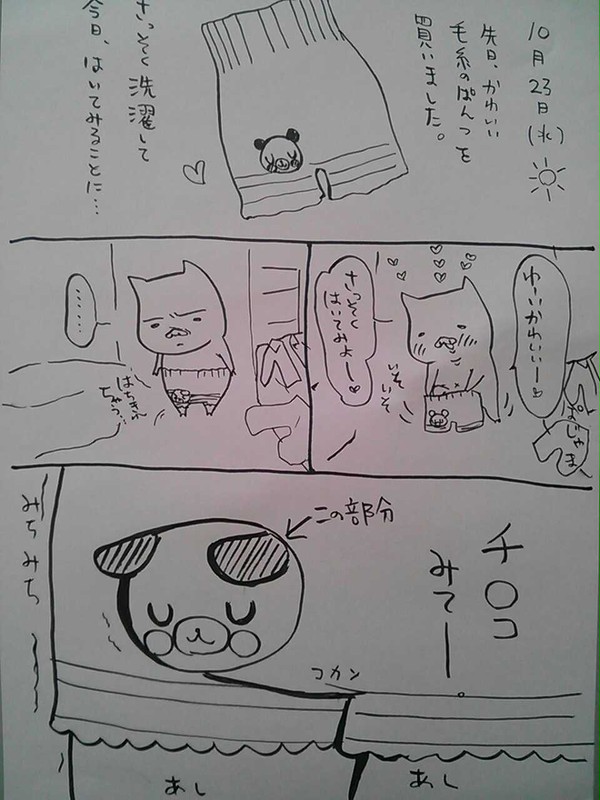 10月23日(水)
先日、かわいい
毛糸のぱんつを
買いました。
さっそく洗濯して
今日、はいてみることに…
ゆーいかわいいー
ぱじゃま
さっそく
はいてみよー
いそいそ
……
はちきれ
ちゃう…
チ〇コ
みてー。
この部分
コカン
みちみち
あし
あし